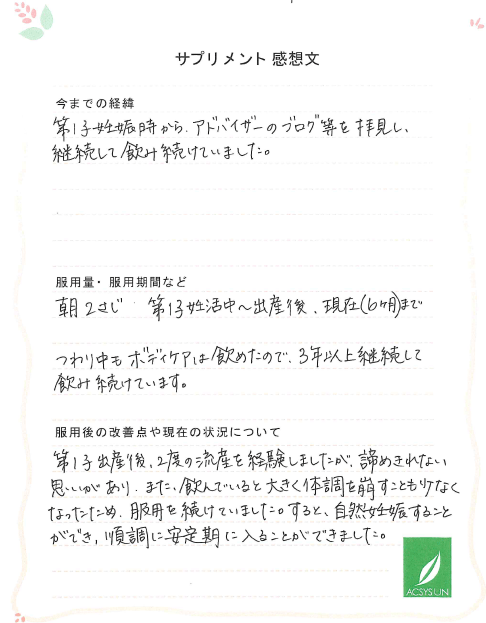 サプリメント感想文
今までの経緯
第1子妊娠時から、アドバイザーのブログ等を拝見し、
継続して飲み続けていました。
服用量・服用期間など
朝2さじ 第1子妊活中~出産後、現在(6ヶ月)まで
つわり中もボディケアは飲めたので、3年以上継続して
飲み続けています。
服用後の改善点や現在の状況について
第1子出産後、2度の流産を経験しましたが、諦めきれない
思いがあり、また、飲んでいると大きく体調を崩すことも少なく
なったため、服用を続けていました。すると、自然妊娠すること
ができ、順調に安定期に入ることができました。
ACSYSUN